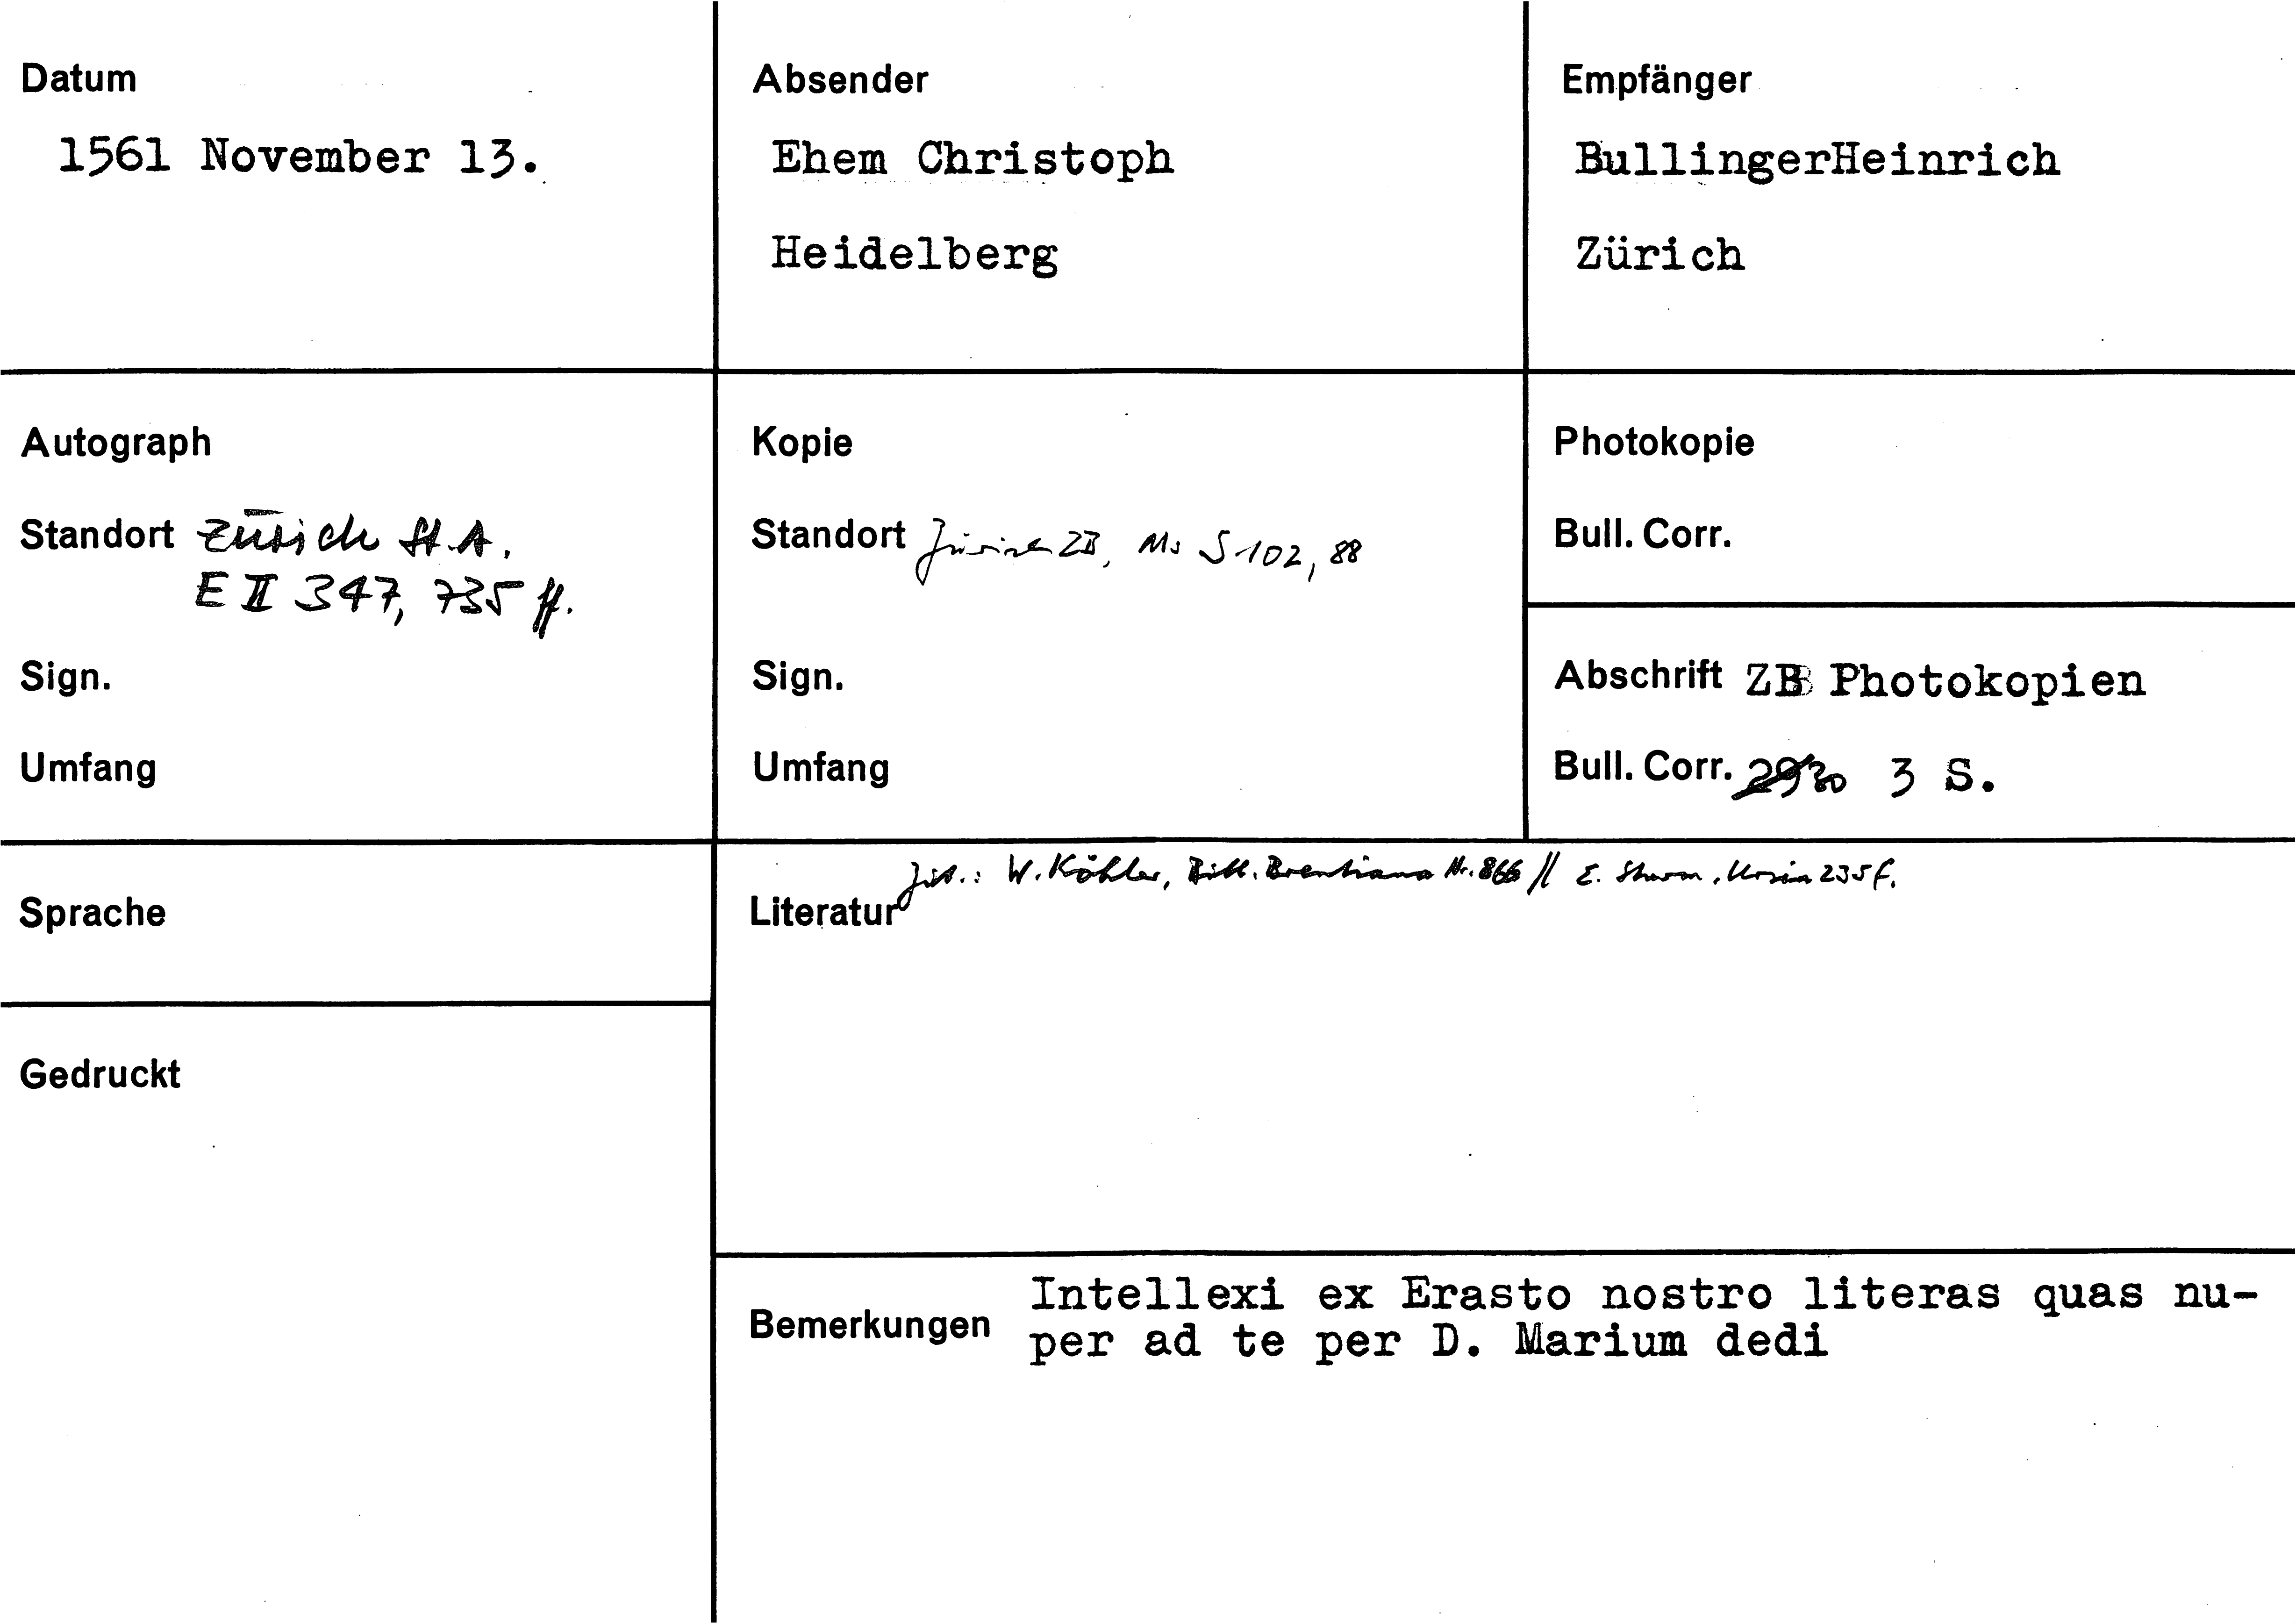 Datum
1561 November 13.
Absender
Ehem Christoph
Heidelberg
Empfänger
BullingerHeinrich
Zürich
Autograph
Standort Zürich StA.
E II 347, 735 ff.
Sign.
Umfang
Kopie
Standort Zürich ZB, Ms S 102, 88
Sign.
Umfang
Photokopie
Bull. Corr.
Abschrift ZB Photokopien
Bull. Corr. 3 S.
Sprache
Gedruckt
Zit.: W. Köhler, Bibl. Brentiana Nr. 866 // E. Sturm, Ursin 235 f.
Literatur
Bemerkungen
Intellexi ex Erasto nostro literas quas nu-
per ad te per D. Marium dedi